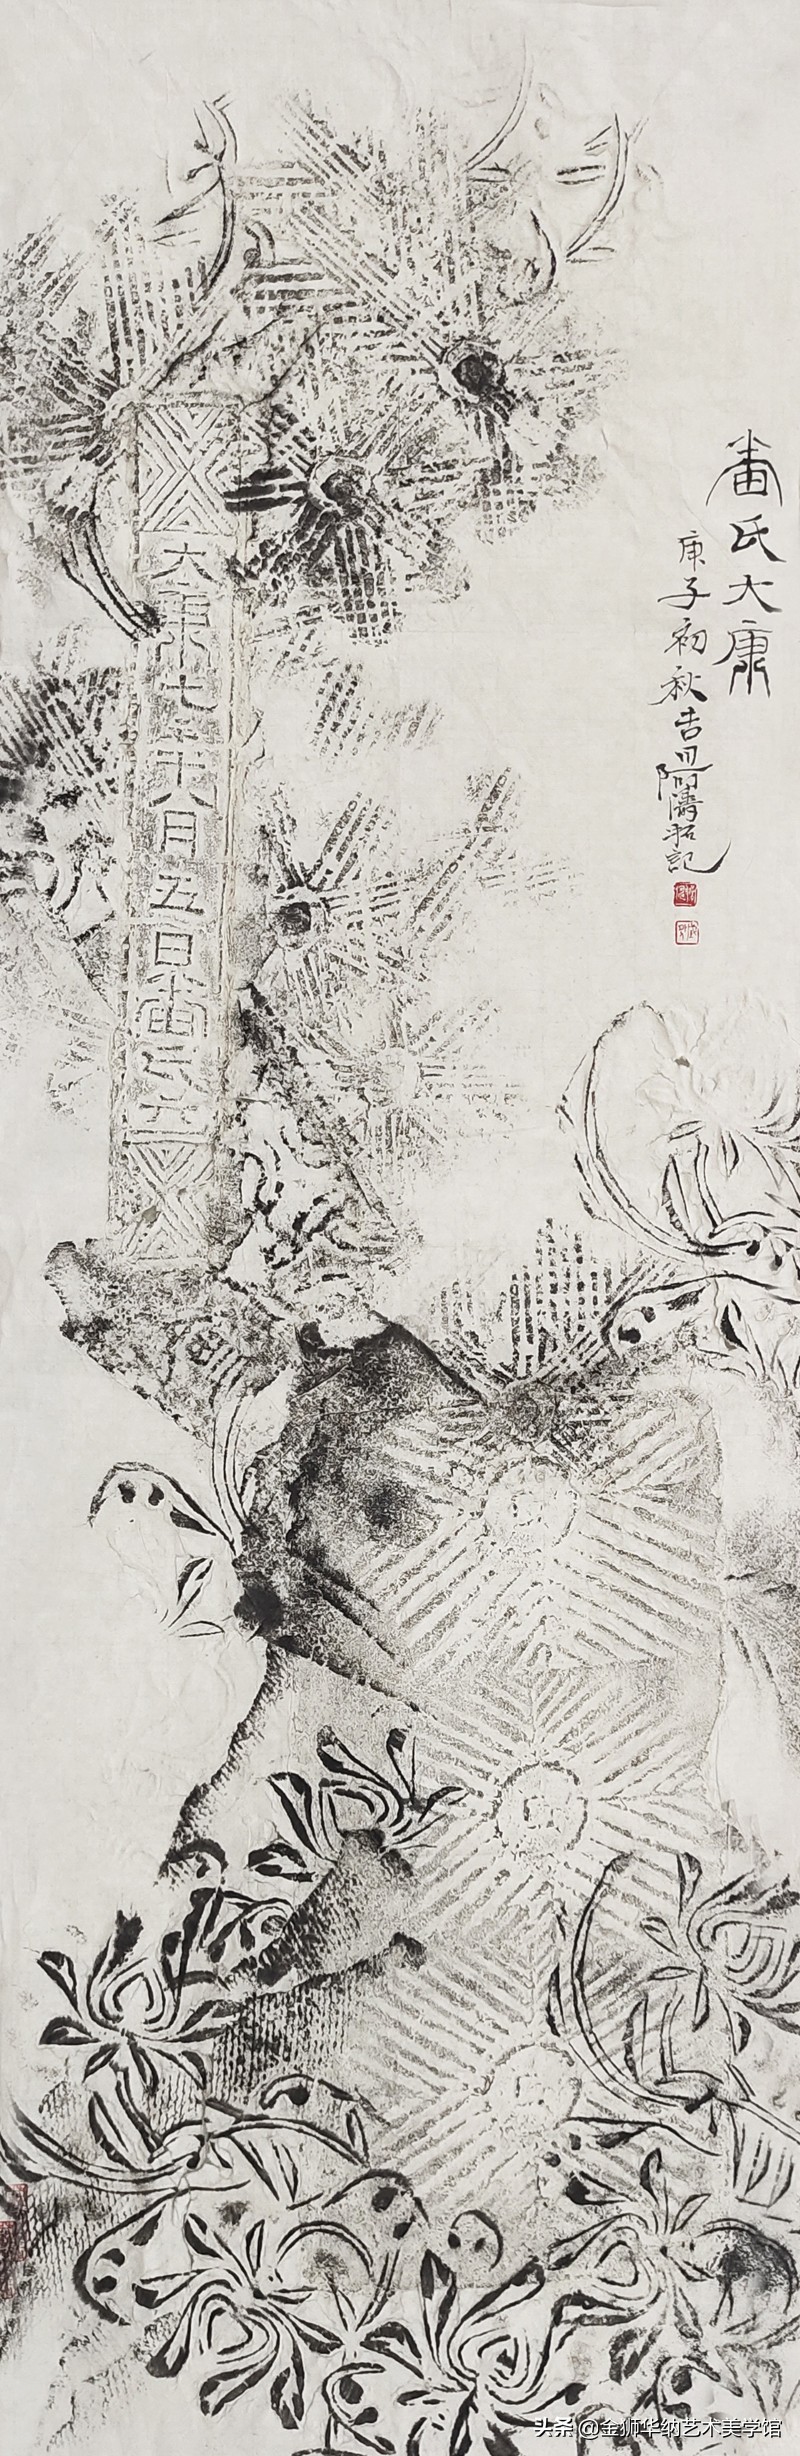 番氏大康
庚子初秋吉
隋濤拓記
七年八月五日番氏大
头条 @金狮华纳艺术美学馆